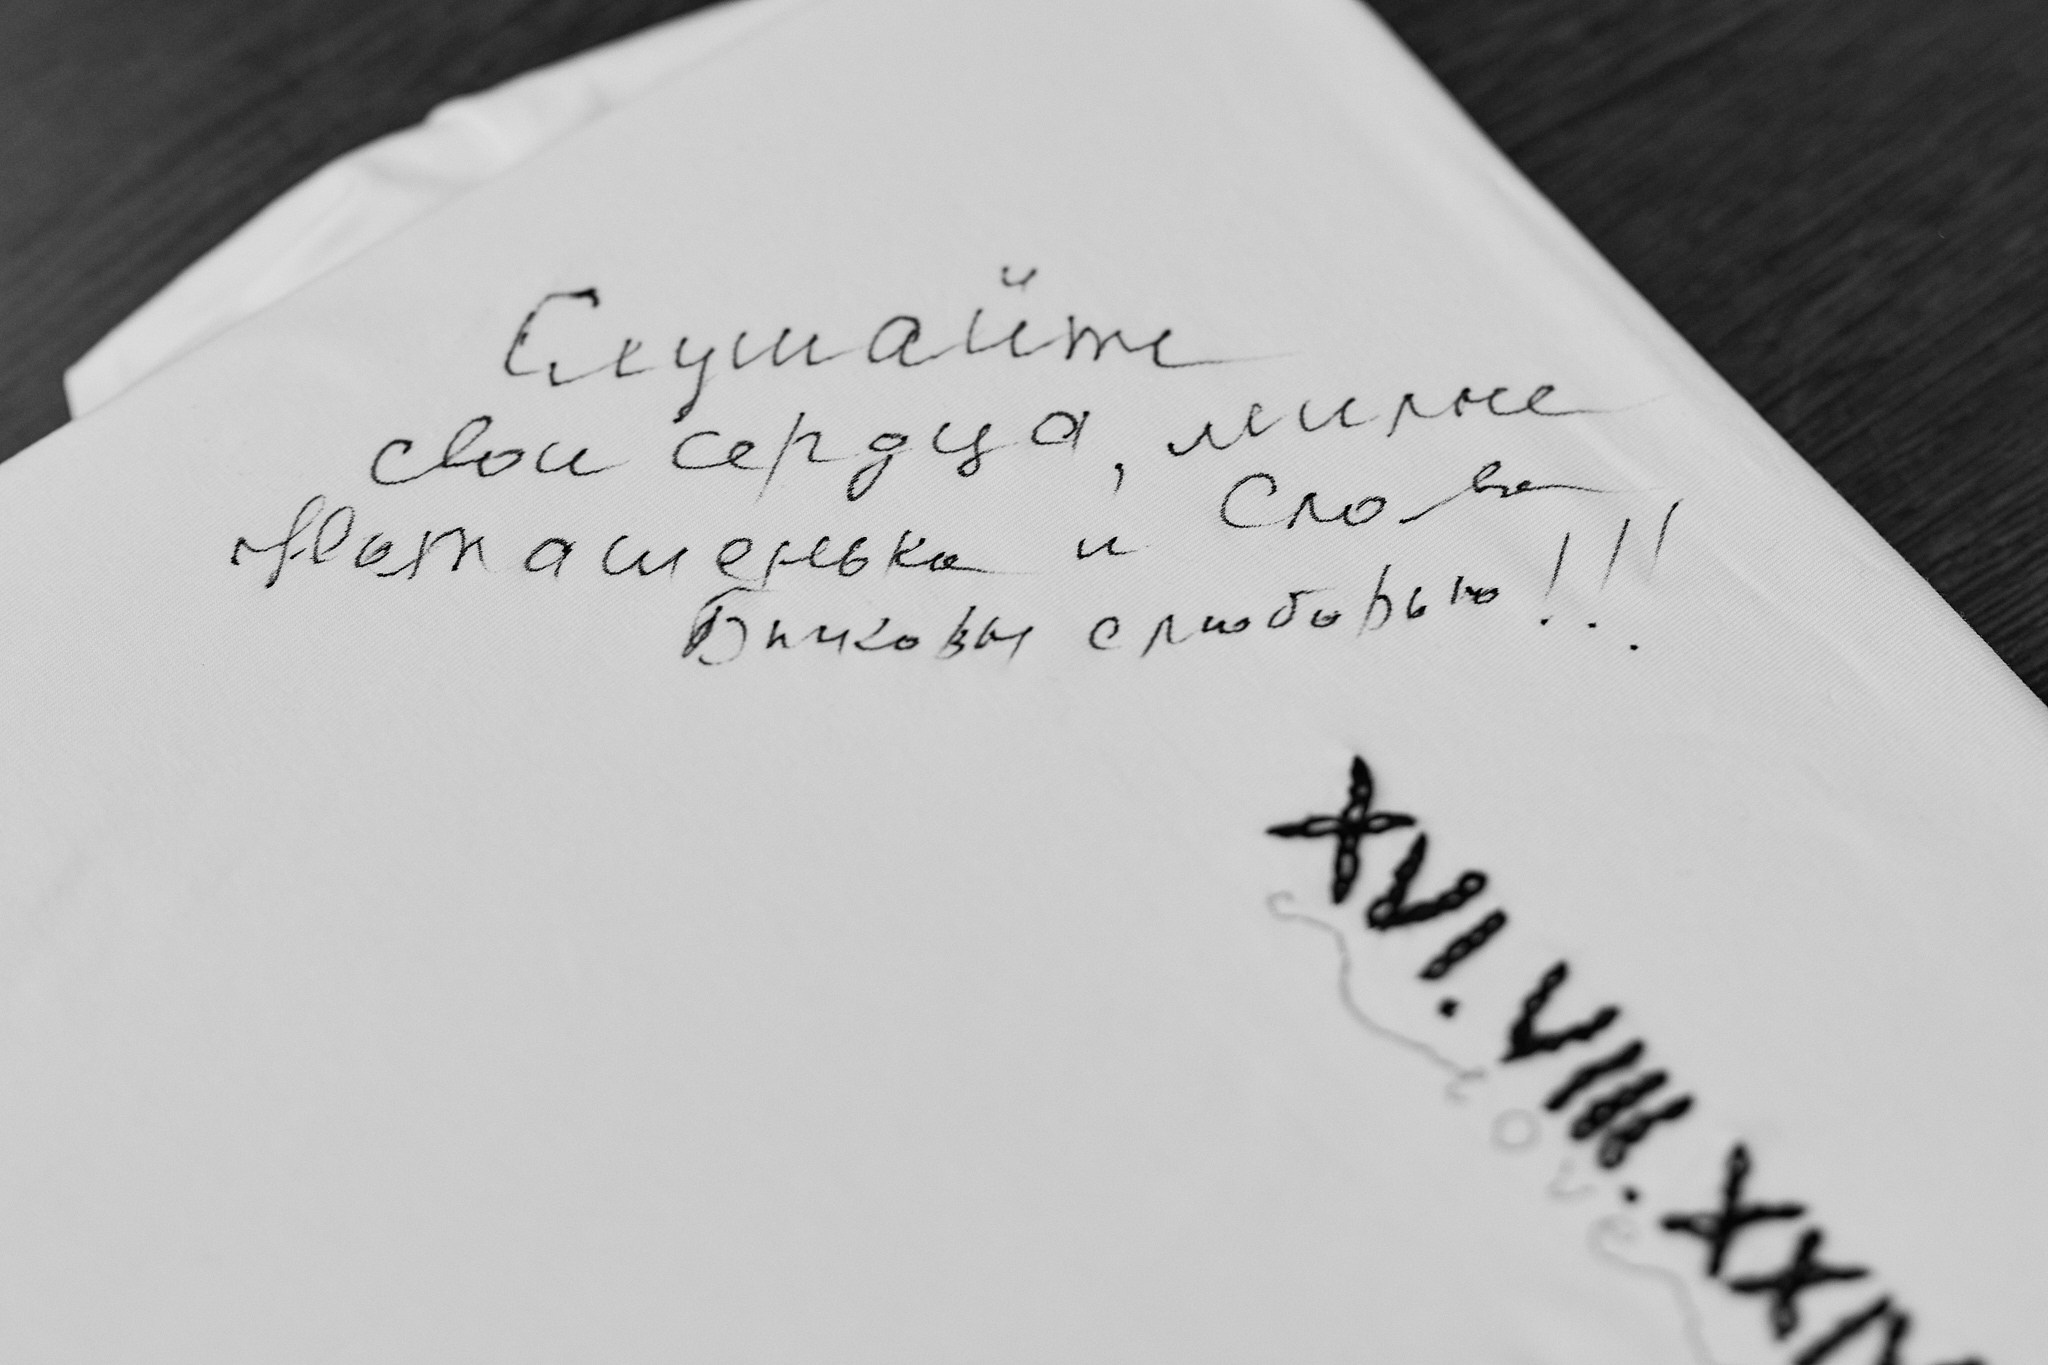 Слушайте
свои сердца, милые
Наташенька и Слава
Быковы с любовью!!!
XVI.VIII.XX
love